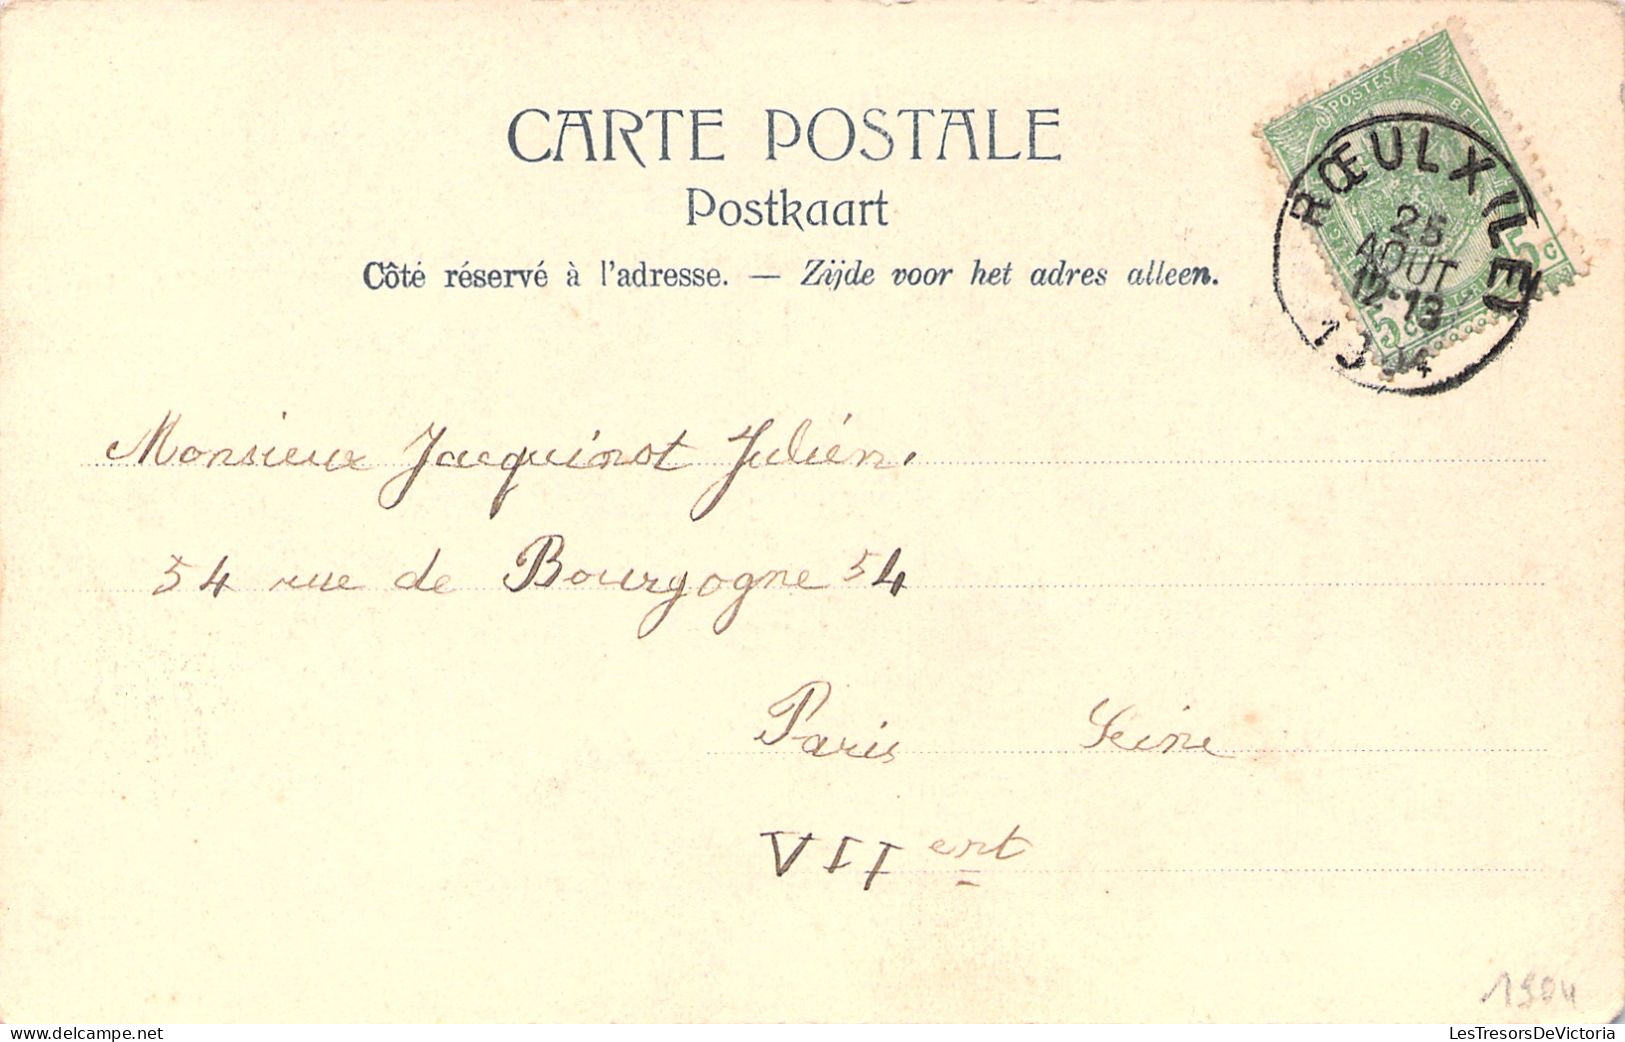 CARTE POSTALE
Postkaart
Côté réservé à l'adresse. — Zijde voor het adres alleen.
POSTES
5 C
5 C
RŒULX (LE)
25
AOUT
12-13
Monsieur Jacquinot Julien.
54 rue de Bourgogne 54
Paris Seine
VII ert
1904
LesTresorsDeVictoria